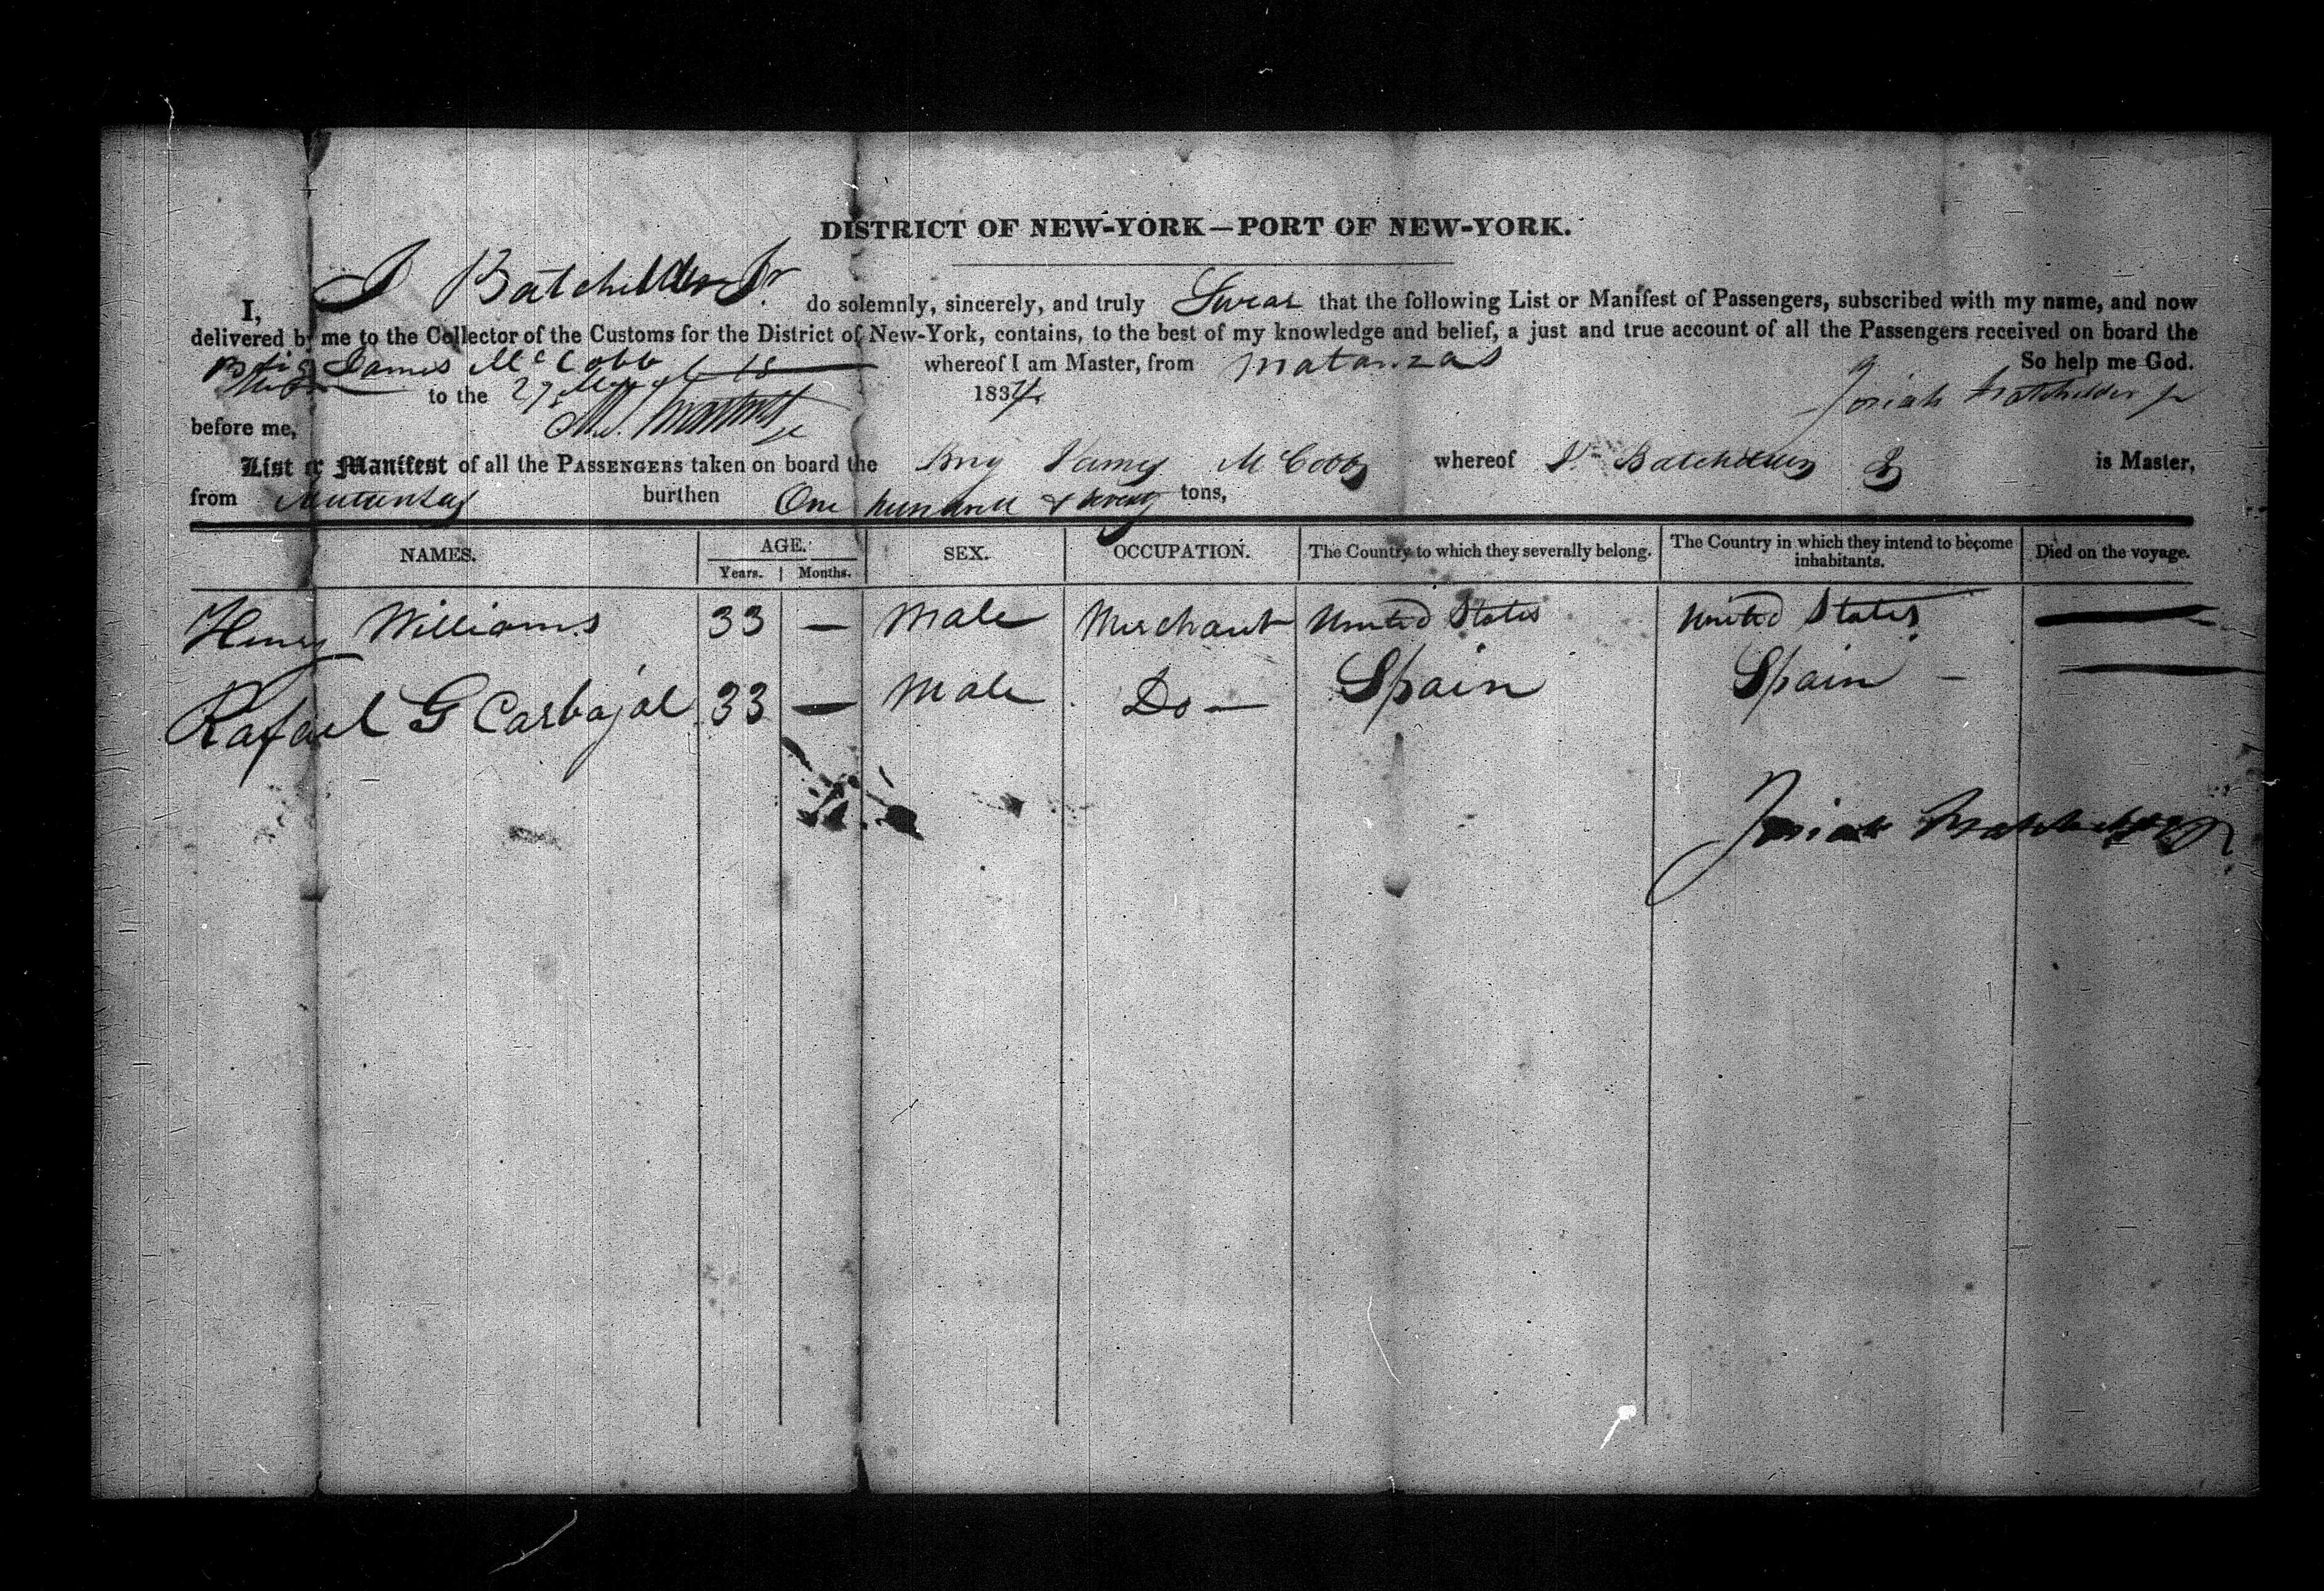 DISTRICT OF NEW-YORK—PORT OF NEW-YORK.
I, J Batchelder Jr do solemnly, sincerely, and truly Swear that the following List or Manifest of Passengers, subscribed with my name, and now
delivered by me to the Collector of the Customs for the District of New-York, contains, to the best of my knowledge and belief, a just and true account of all the Passengers received on board the
Brig James McCobb whereof I am Master, from Matanzas So help me God.
to the 27 1834. Josiah Batchelder Jr
before me,
List or Manifest of all the PASSENGERS taken on board the Brig James McCobb whereof J. Batchelder Jr is Master,
from Matanzas burthen One hundred & seventy tons,
NAMES. AGE. SEX. OCCUPATION. The Country to which they severally belong. The Country in which they intend to become inhabitants. Died on the voyage.
Years. Months.
Henry Williams 33 — Male Merchant United States United States —
Rafael G Carbajal 33 — Male Do — Spain Spain — —
Josiah Batchelder Jr